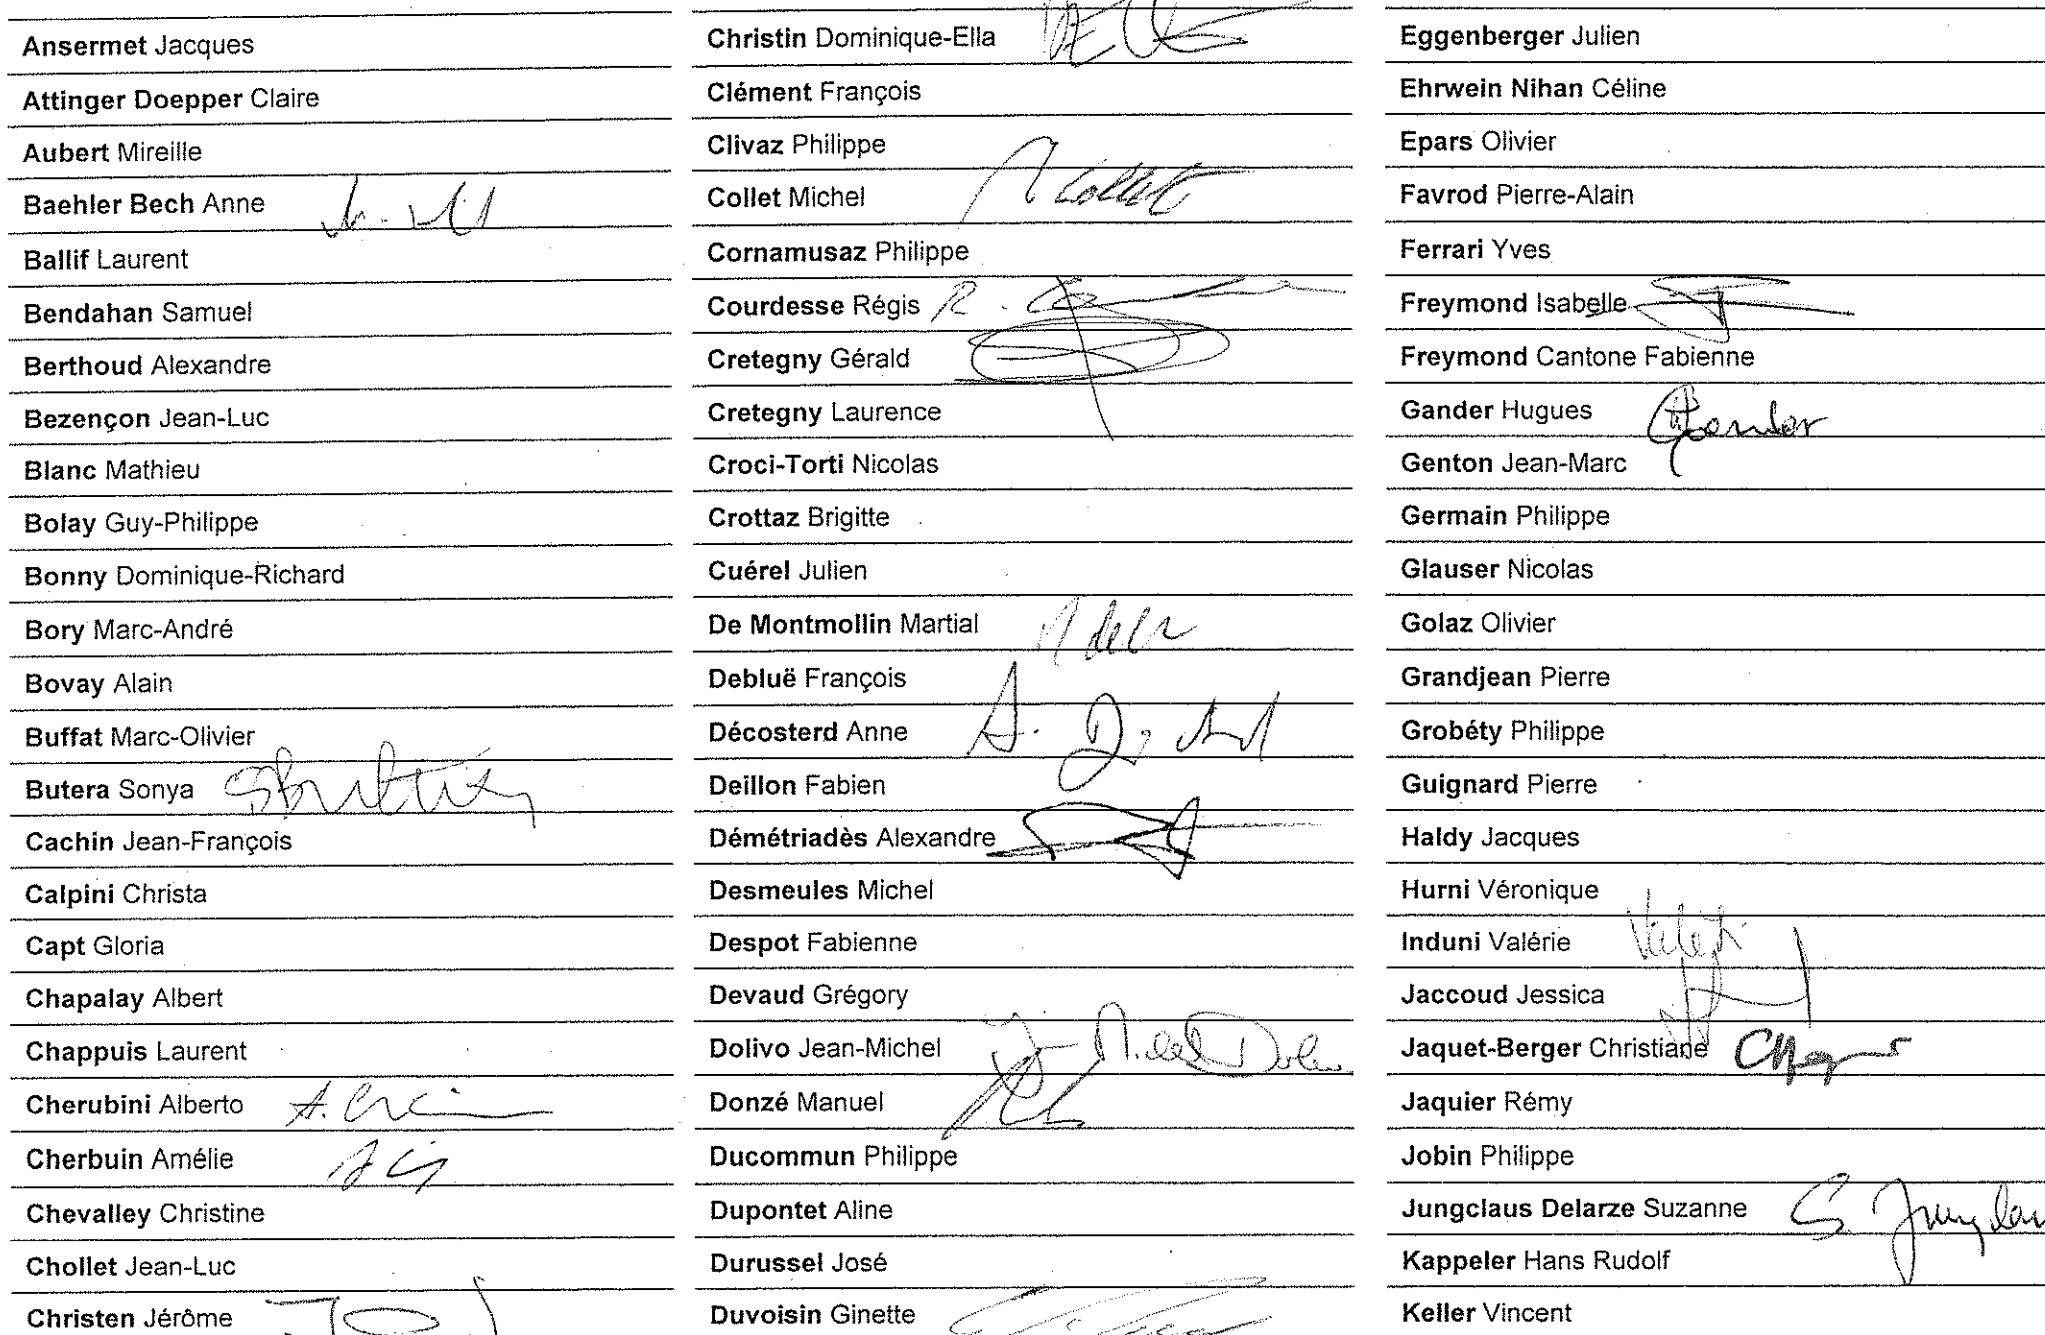 Ansermet Jacques
Attinger Doepper Claire
Aubert Mireille
Baehler Bech Anne
Ballif Laurent
Bendahan Samuel
Berthoud Alexandre
Bezençon Jean-Luc
Blanc Mathieu
Bolay Guy-Philippe
Bonny Dominique-Richard
Bory Marc-André
Bovay Alain
Buffat Marc-Olivier
Butera Sonya
Cachin Jean-François
Calpini Christa
Capt Gloria
Chapalay Albert
Chappuis Laurent
Cherubini Alberto
Cherbuin Amélie
Chevalley Christine
Chollet Jean-Luc
Christen Jérôme
Christin Dominique-Ella
Clément François
Clivaz Philippe
Collet Michel Collet
Cornamusaz Philippe
Courdesse Régis
Cretegny Gérald
Cretegny Laurence
Croci-Torti Nicolas
Crottaz Brigitte
Cuérel Julien
De Montmollin Martial
Debluë François
Décosterd Anne
Deillon Fabien
Démétriadès Alexandre
Desmeules Michel
Despot Fabienne
Devaud Grégory
Dolivo Jean-Michel
Donzé Manuel
Ducommun Philippe
Dupontet Aline
Durussel José
Duvoisin Ginette
Eggenberger Julien
Ehrwein Nihan Céline
Epars Olivier
Favrod Pierre-Alain
Ferrari Yves
Freymond Isabelle
Freymond Cantone Fabienne
Gander Hugues Gander
Genton Jean-Marc
Germain Philippe
Glauser Nicolas
Golaz Olivier
Grandjean Pierre
Grobéty Philippe
Guignard Pierre
Haldy Jacques
Hurni Véronique
Induni Valérie
Jaccoud Jessica
Jaquet-Berger Christiane
Jaquier Rémy
Jobin Philippe
Jungclaus Delarze Suzanne
Kappeler Hans Rudolf
Keller Vincent